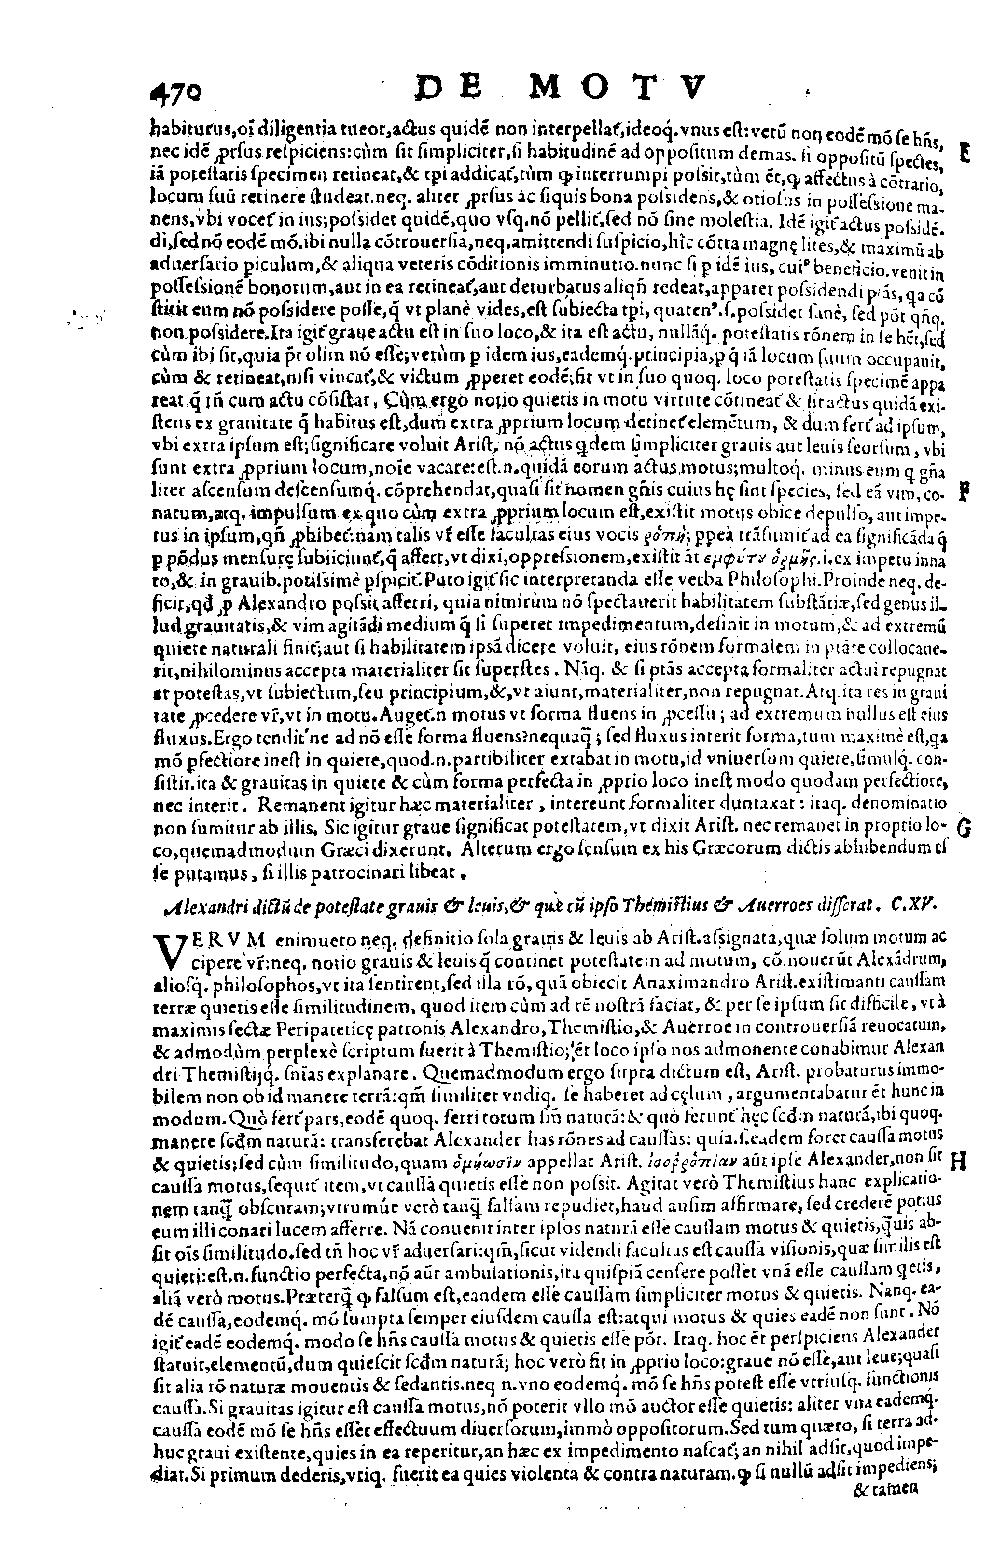 470 DE MOTV
habiturus,oĩ diligentia tueor,actus quidē non interpellat᷑,ideoq́.vnus est:verũ non eodē mō se hñs,
nec idē ꝓrsus respiciens:cùm sit simpliciter,si habitudinē ad oppositum demas. si oppositũ spectes, E
iã potestatis specimen retineat,& tpi addicat᷑,tùm ꝙ interrumpi possit,tùm ēt,ꝙ affectus à cōtrario,
locum suũ retinere studeat.neq. aliter ꝓrsus ac siquis bona possidens,& otiosus in possessione ma-
nens,vbi vocet᷑ in ius;possidet quidē,quo vsq.nō pellit᷑,sed nō sine molestia. Idē igit᷑ actus possidē-
di,sed nō eodē mō.ibi nulla cōtrouersia,neq.amittendi suspicio,hîc cōtra magnę lites,& maximũ ab
aduersario piculum,& aliqua veteris cōditionis imminutio.nunc si p idē ius,cuiꝰ beneficio.venit in
possessionē bonorum,aut in ea retineat᷑,aut deturbatus aliqñ redeat,apparet possidendi ptãs, qa cō
stitit eum nō possidere posse,q̃ vt planè vides,est subiecta tpi, quatenꝰ.s.possidet sanè, sed pōt qñq.
non possidere.Ita igit᷑ graue actu est in suo loco,& ita est actu, nullãq́. potestatis rōnem in se hēt,sed
cùm ibi sit,quia pōt olim nō esse;verùm p idem ius,eademq́.principia,p q̃ iã locum suum occupauit,
cùm & retineat,nisi vincat᷑,& victum ꝓperet eodē;fit vt in suo quoq. loco potestatis specimē appa
reat q̃ tñ cum actu cōsistat. Cùm ergo notio quietis in motu virtute cōtineat᷑ & sit actus quidã exi-
stens ex grauitate q̃ habitus est,dum extra ꝓprium locum detinet᷑ elemētum, & dum fert᷑ ad ipsum,
vbi extra ipsum est;significare voluit Arist. nō actus qdem simpliciter grauis aut leuis seorsum, vbi
sunt extra ꝓprium locum,noīe vacare:est.n.quidã eorum actus,motus;multoq́. minus eum q gña
liter ascensum descensumq́. cōprehendat,quasi sit nomen gñis cuius hę sint species, sed eã vim, co- F
natum,atq. impulsum ex quo cùm extra ꝓprium locum est,existit motus obice depulso, aut impe-
tus in ipsum,qñ ꝓhibet᷑:nam talis vr̃ esse facultas eius vocis ῥοπὴ; ppea trãsumit᷑ ad ea significãda q̃
p pōdus mensurę subijciunt᷑,q̃ affert,vt dixi,oppressionem,existit āt ἐμφύτυ ὁρμῆς.i.ex impetu inna
to,& in grauib.potissimè pspicit᷑.Puto igit᷑ sic interpretanda esse verba Philosophi.Proinde neq. de-
ficit,qđ ꝓ Alexandro possit afferri, quia nimirum nō spectauerit habilitatem substãtiæ,sed genus il-
lud grauitatis,& vim agitãdi medium q̃ si superet impedimentum,desinit in motum,& ad extremũ
quiete naturali finit᷑;aut si habilitatem ipsã dicere voluit, eius rōnem formalem in ptãte collocaue-
rit,nihilominus accepta materialiter sit superstes. Nãq. & si ptãs accepta formaliter actui repugnat
at potestas,vt subiectum,seu principium,&,vt aiunt,materialiter,non repugnat.Atq.ita res in graui
tate ꝓcedere vr̃,vt in motu.Auget᷑.n motus vt forma fluens in ꝓcessu; ad extremum nullus est eius
fluxus.Ergo tendit᷑ ne ad nō esse forma fluens?nequaq̃; sed fluxus interit forma,tum maximè est,qa
mō pfectiore inest in quiete,quod.n.partibiliter extabat in motu,id vniuersum quiete,simulq́. con-
sistit.ita & grauitas in quiete & cùm forma perfecta in ꝓprio loco inest modo quodam perfectiore,
nec interit. Remanent igitur hæc materialiter, intereunt formaliter duntaxat: itaq. denominatio
non sumitur ab illis. Sic igitur graue significat potestatem,vt dixit Arist. nec remanet in proprio lo- G
co,quemadmodum Græci dixerunt. Alterum ergo sensum ex his Græcorum dictis abhibendum es
se putamus, si illis patrocinari libeat.
Alexandri dictũ de potestate grauis & leuis,& quæ cũ ipso Themistius & Auerroes disserat. C.XV.
VERVM enimuero neq. definitio sola grauis & leuis ab Arist.assignata,quæ solum motum ac
cipere vr̃:neq. notio grauis & leuis q̃ continet potestatem ad motum, cō.nouerũt Alexãdrum,
aliosq́. philosophos,vt ita sentirent,sed illa rō, quã obiecit Anaximandro Arist.existimanti caussam
terræ quietis esse similitudinem, quod item cùm ad rē nostrã faciat, & per se ipsum sit difficile, vt à
maximis sectæ Peripateticę patronis Alexandro,Themistio,& Auerroe in controuersiã reuocatum,
& admodùm perplexè scriptum fuerit à Themistio; ēt loco ipso nos admonente conabimur Alexan
dri Themistijq́. sñias explanare. Quemadmodum ergo supra dictum est, Arist. probaturus immo-
bilem non ob id manere terrã:qm̃ similiter vndiq. se haberet ad cęlum, argumentabatur ēt hunc in
modum.Quò fert᷑ pars,eodē quoq. ferri totum sm̃ naturã:& quò ferunt᷑ hęc scđm naturã,ibi quoq.
manere scđm naturã: transferebat Alexander has rōnes ad caussas: quia.s.eadem foret caussa motus
& quietis;sed cùm similitudo,quam ὁμόιωσιν appellat Arist. ἰσοῤῥοπίαν aũt ipse Alexander,non sit H
caussa motus,sequit᷑ item,vt caussa quietis esse non possit. Agitat verò Themistius hanc explicatio-
nem tanq̃ obscuram;vtrumùe verò tanq̃ falsam repudiet,haud ausim affirmare, sed crederē potius
eum illi conari lucem afferre. Nã conuenit inter ipsos naturã esse caussam motus & quietis,q̃uis ab-
sit oīs similitudo.sed tñ hoc vr̃ aduersari:qm̃,sicut videndi facultas est caussa visionis,quæ similis est
quieti:est.n.functio perfecta,nō aũt ambulationis,ita quispiã censere posset vnã esse caussam qetis,
aliã verò motus.Præterq̃ ꝙ falsum est,eandem esse caussam simpliciter motus & quietis. Nanq. ea-
dē caussa,eodemq́. mō sumpta semper eiusdem caussa est:atqui motus & quies eadē non sunt. Nō
igit᷑ eadē eodemq́. modo se hñs caussa motus & quietis esse pōt. Itaq. hoc ēt perspiciens Alexander
statuit,elementũ,dum quiescit scđm naturã; hoc verò fit in ꝓprio loco:graue nō esse,aut leue;quasi
sit alia rō naturæ mouentis & sedantis.neq n.vno eodemq́. mō se hñs potest esse vtriusq. functionis
caussa.Si grauitas igitur est caussa motus,nō poterit vllo mō auctor esse quietis: aliter vna eademq́.
caussa eodē mō se hñs esset effectuum diuersorum,immò oppositorum.Sed tum quæro, si terra ad-
huc graui existente,quies in ea reperitur,an hæc ex impedimento nascat᷑;an nihil adsit,quod impe-
diat.Si primum dederis,vtiq. fuerit ea quies violenta & contra naturam.ꝙ si nullũ adsit impediens;
& tamen